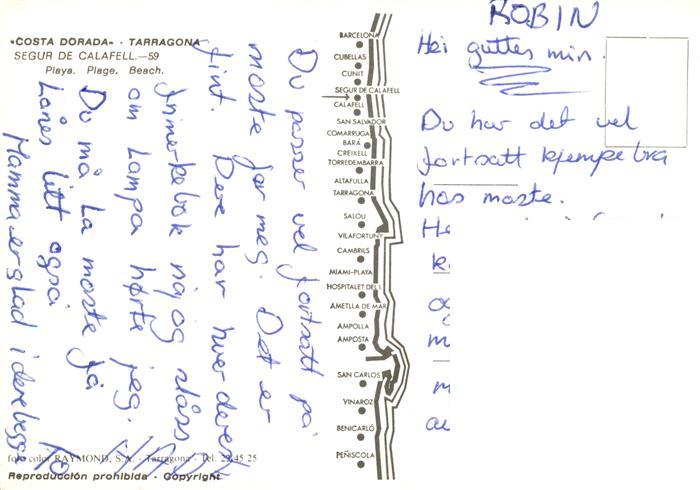 «COSTA DORADA» - TARRAGONA
SEGUR DE CALAFELL.—59
Playa. Plage. Beach.
BARCELONA
CUBELLAS
CUNIT
SEGUR DE CALAFELL
CALAFELL
SAN SALVADOR
COMARRUGA
BARÁ
CREIXELL
TORREDEMBARRA
ALTAFULLA
TARRAGONA
SALOU
VILAFORTUNY
CAMBRILS
MIAMI-PLAYA
HOSPITALET DEL I.
AMETLLA DE MAR
AMPOLLA
AMPOSTA
SAN CARLOS
VINAROZ
BENICARLÓ
PEÑISCOLA
ROBIN
Hei guttes min.
Du har det vel
fortsatt kjempebra
hos moste.
He
k
og
m
m
au
Du passer vel fortsatt på
moste for meg. Det er
fint. Dere har hver deres
frimerkebok nå og slåss
om Lampa hørte jeg.
Du må La moste få
Lånes litt også
Mamma er glad i dere begge
foto color RAYMOND, S.A. - Tarragona - Tel. 22 45 25
Reproducción prohibida - Copyright